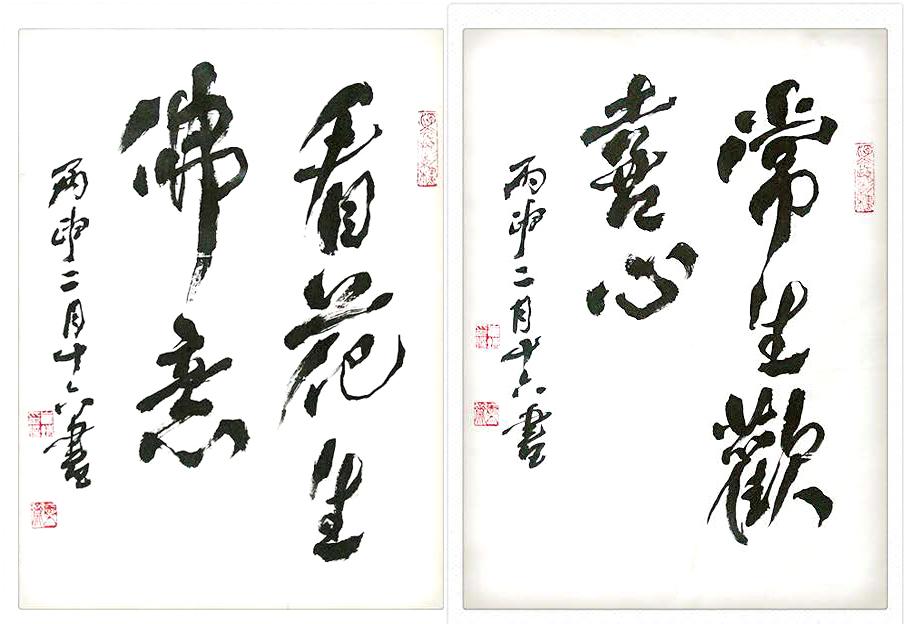 看花生
佛意
丙申二月十六書
常生歡
喜心
丙申二月十六書